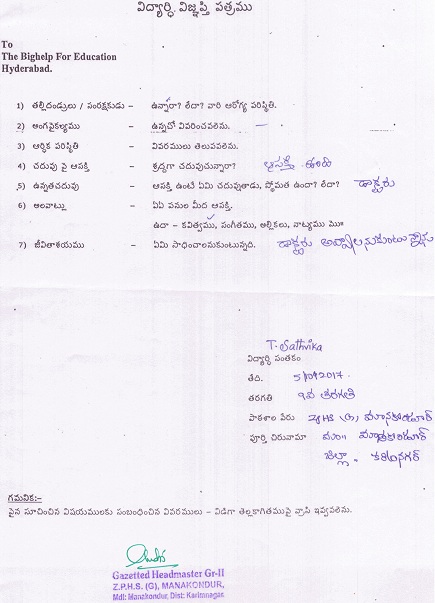 విద్యార్థి విజ్ఞప్తి పత్రము
To
The Bighelp For Education
Hyderabad.
1) తల్లిదండ్రులు / సంరక్షకుడు – ఉన్నారా? లేదా? వారి ఆరోగ్య పరిస్థితి.
2) అంగవైకల్యము – ఉన్నచో వివరించవలెను. –
3) ఆర్థిక పరిస్థితి – వివరములు తెలుపవలెను.
4) చదువు పై ఆసక్తి – శ్రద్ధగా చదువుచున్నారా? ఆసక్తి ఉంది
5) ఉన్నతచదువు – ఆసక్తి ఉంటే ఏమి చదువుతాడు, స్తోమత ఉందా? లేదా? డాక్టరు
6) అలవాట్లు – ఏఏ పనుల మీద ఆసక్తి.
ఉదా – కవిత్వము, సంగీతము, అల్లికలు, నాట్యము మొ॥
7) జీవితాశయము – ఏమి సాధించాలనుకుంటున్నది. డాక్టరు అవ్వాలనుకుంటున్నాను
T. Sathvika
విద్యార్థి సంతకం
తేది. 2017
తరగతి తరగతి
పాఠశాల పేరు ZPHS (G), మానకొండూర్
పూర్తి చిరునామా మం॥ మానకొండూర్
జిల్లా. కరీంనగర్
గమనిక:-
పైన సూచించిన విషయములకు సంబంధించిన వివరములు – విడిగా తెల్లకాగితముపై వ్రాసి ఇవ్వవలెను.
Gazetted Headmaster Gr-II
Z.P.H.S. (G), MANAKONDUR,
Mdl: Manakondur, Dist: Karimnagar.